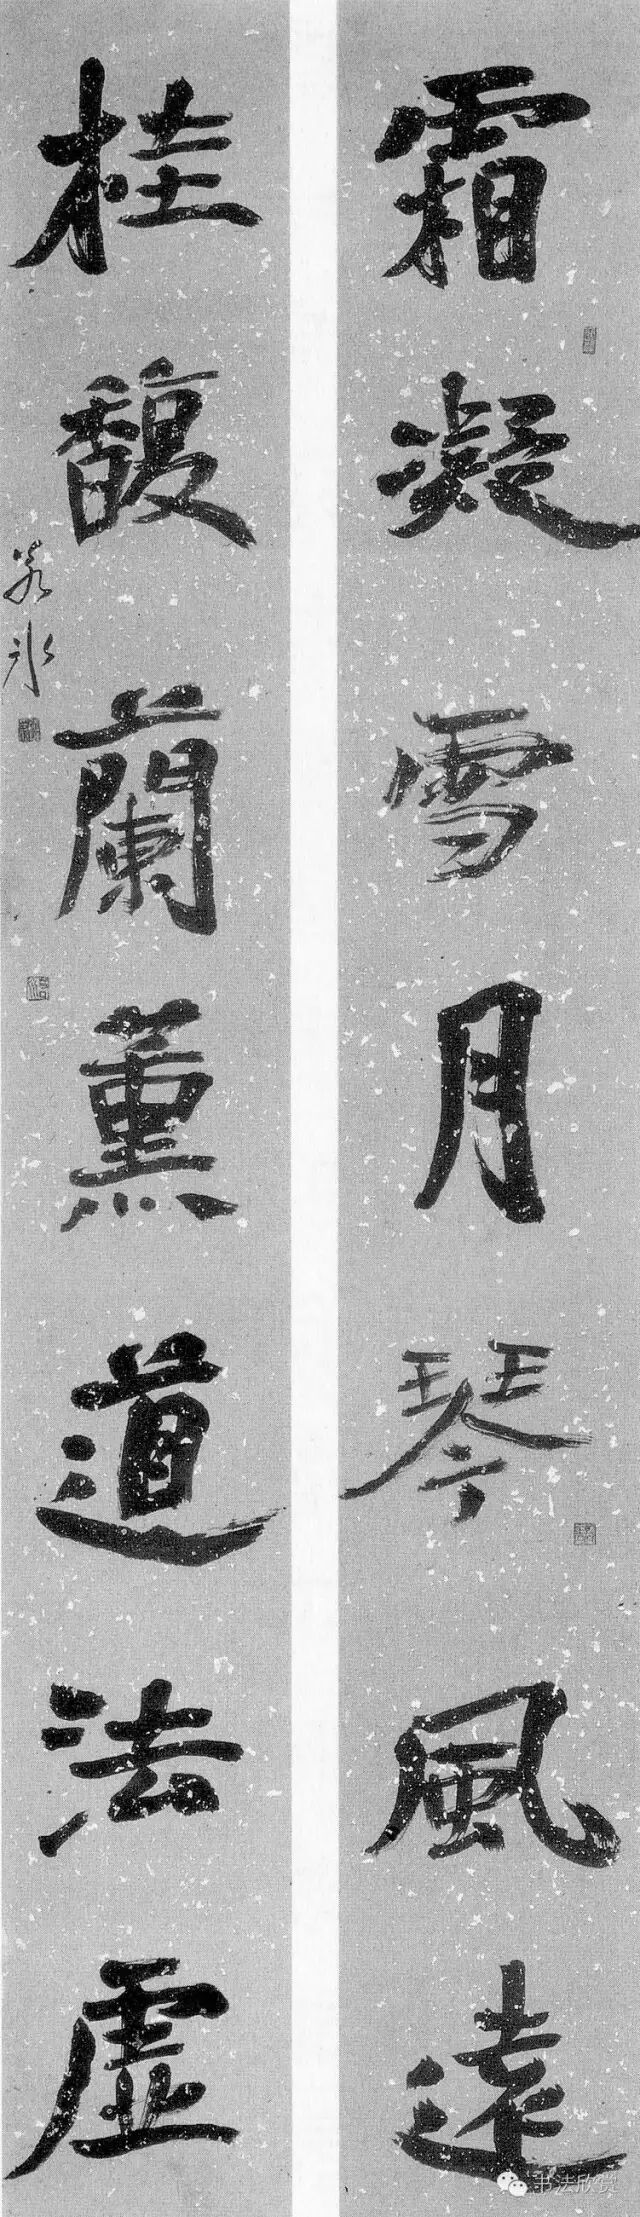 霜凝雪月琴風遠
桂馥蘭薰道法虛
若冰
书法欣赏